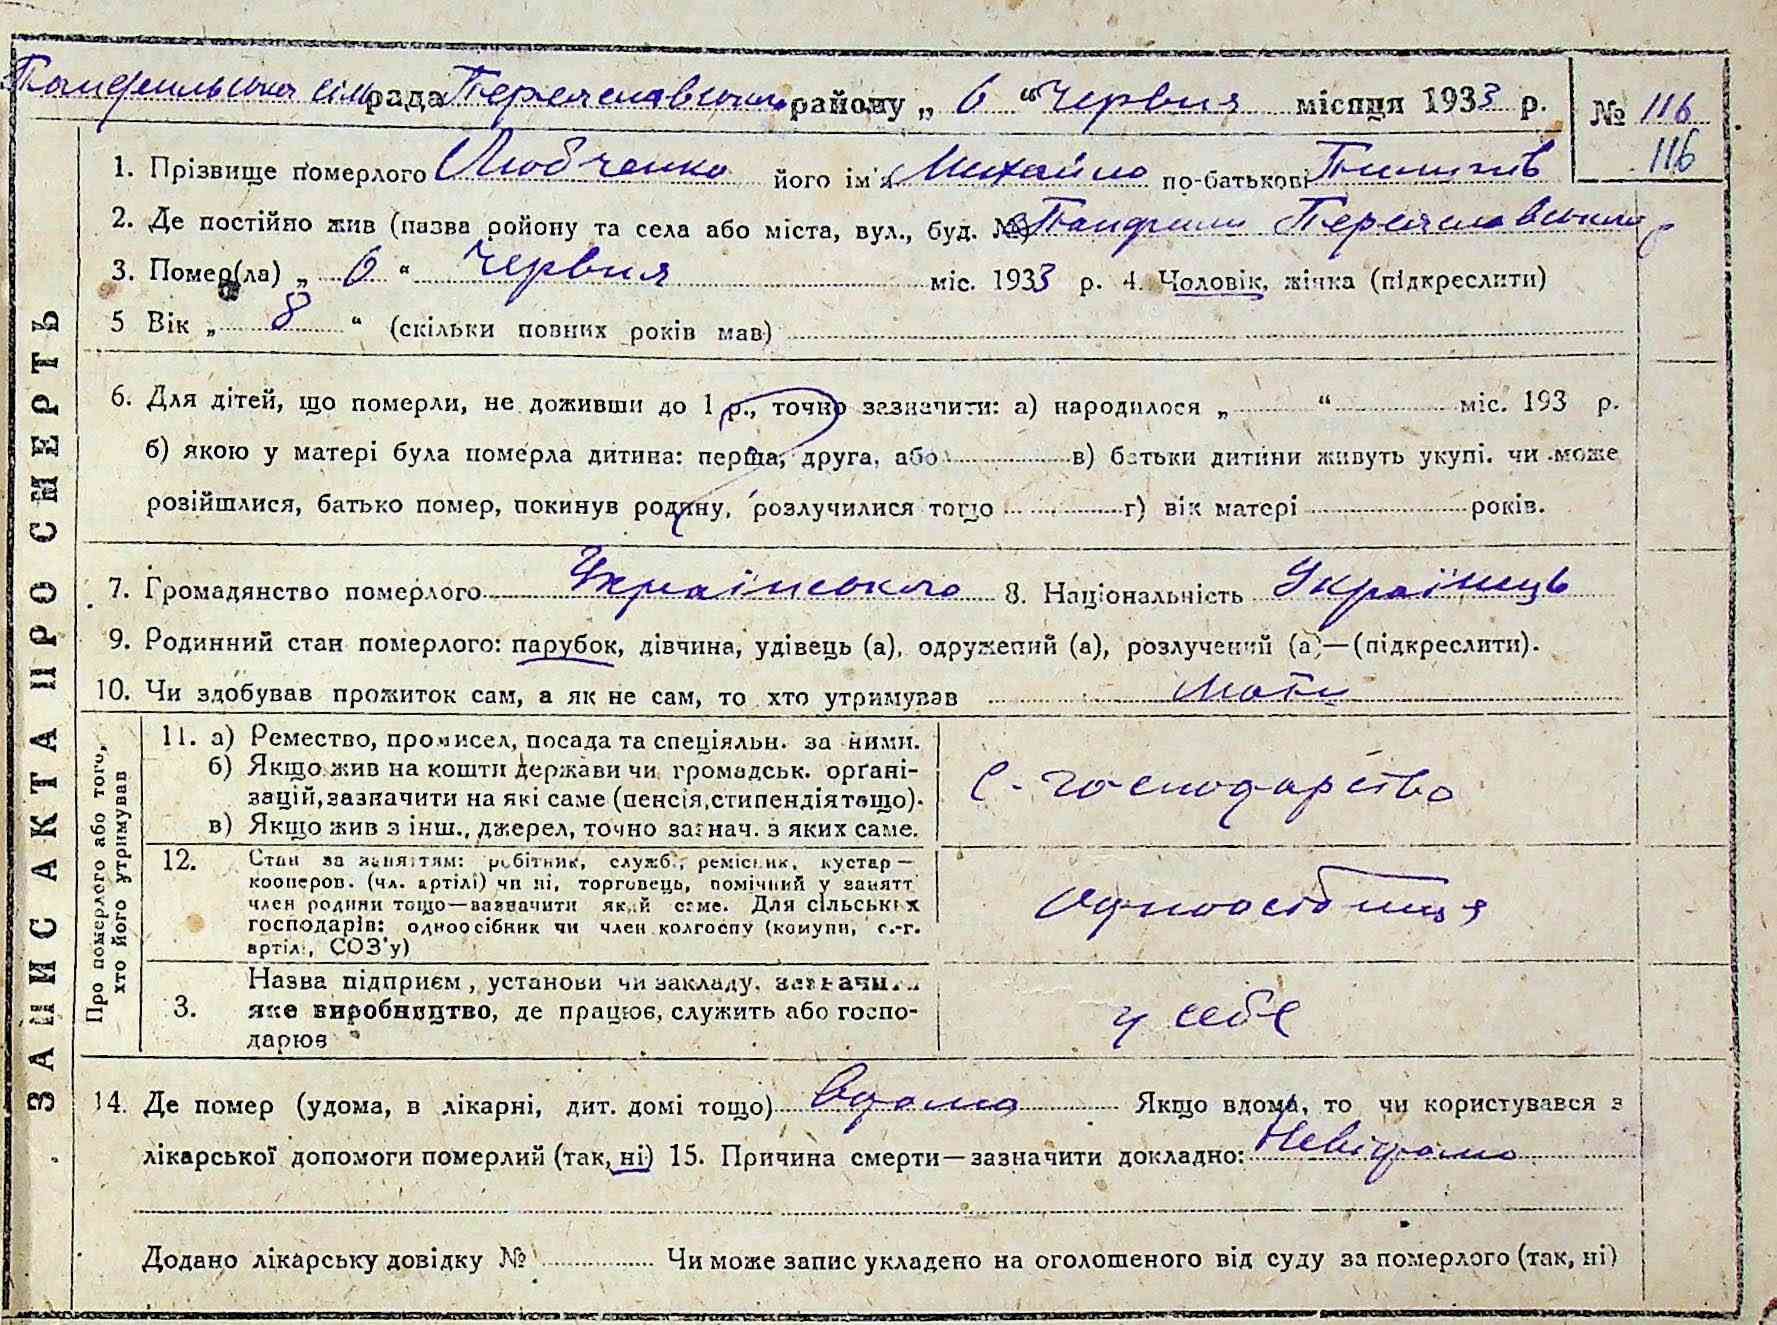 Панфильська сіль рада Переяславського району „ 6 “ Червня місяця 1933 р. № 116
116
1. Прізвище померлого Любченко його ім'я Михайло по-батькові Пилипів
2. Де постійно жив (назва ройону та села або міста, вул., буд. №) Панфили Переяславського
3. Помер(ла) „ 6 “ Червня міс. 1933 р. 4. Чоловік, жінка (підкреслити)
5 Вік „ 8 “ (скільки повних років мав)
6. Для дітей, що померли, не доживши до 1 р., точно зазначити: а) народилося „ “ міс. 193 р.
б) якою у матері була померла дитина: перша, друга, або в) батьки дитини живуть укупі. чи може
розійшлися, батько помер, покинув родину, розлучилися тощо г) вік матері років.
7. Громадянство померлого Українського 8. Національність Українець
9. Родинний стан померлого: парубок, дівчина, удівець (а), одружений (а), розлучений (а)—(підкреслити).
10. Чи здобував прожиток сам, а як не сам, то хто утримував Мати
11. а) Ремество, промисел, посада та спеціяльн. за ними.
б) Якщо жив на кошти держави чи громадськ. органі-
зацій, зазначити на які саме (пенсія, стипендія тощо).
в) Якщо жив з інш., джерел, точно зазнач. з яких саме.
С-господарство
12. Стан за заняттям: робітник, служб., ремісник, кустар—
кооперов. (чл. артілі) чи ні, торговець, помічний у занятт
член родини тощо—вазначити який саме. Для сільських
господарів: одноосібник чи член колгоспу (комуни, с.-г.
артілі, СОЗ'у)
Одноосібниця
3. Назва підприєм, установи чи закладу, зазначи
яке виробництво, де працює, служить або госпо-
дарює
у себе
14. Де помер (удома, в лікарні, дит. домі тощо) Вдома Якщо вдома, то чи користувався з
лікарської допомоги померлий (так, ні) 15. Причина смерти—зазначити докладно: Невідомо
Додано лікарську довідку № Чи може запис укладено на оголошеного від суду за померлого (так, ні)
ЗАПИС АКТА ПРО СМЕРТЬ
Про померлого або того,
хто його утримував